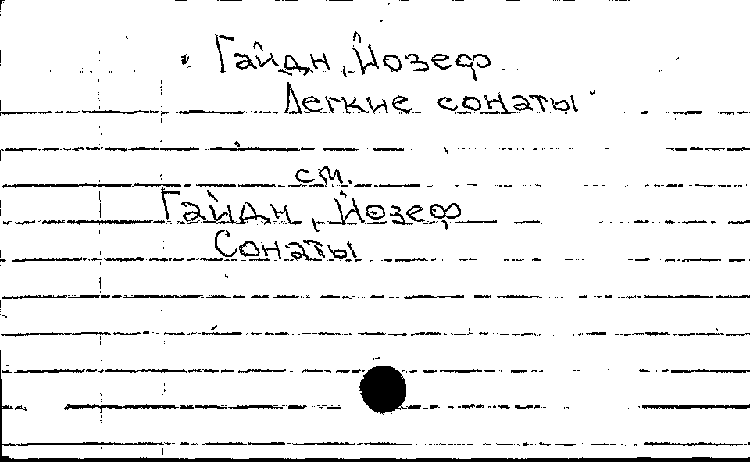 Гайдн, Йозеф
Легкие сонаты
см.
Гайдн, Йозеф
Сонаты